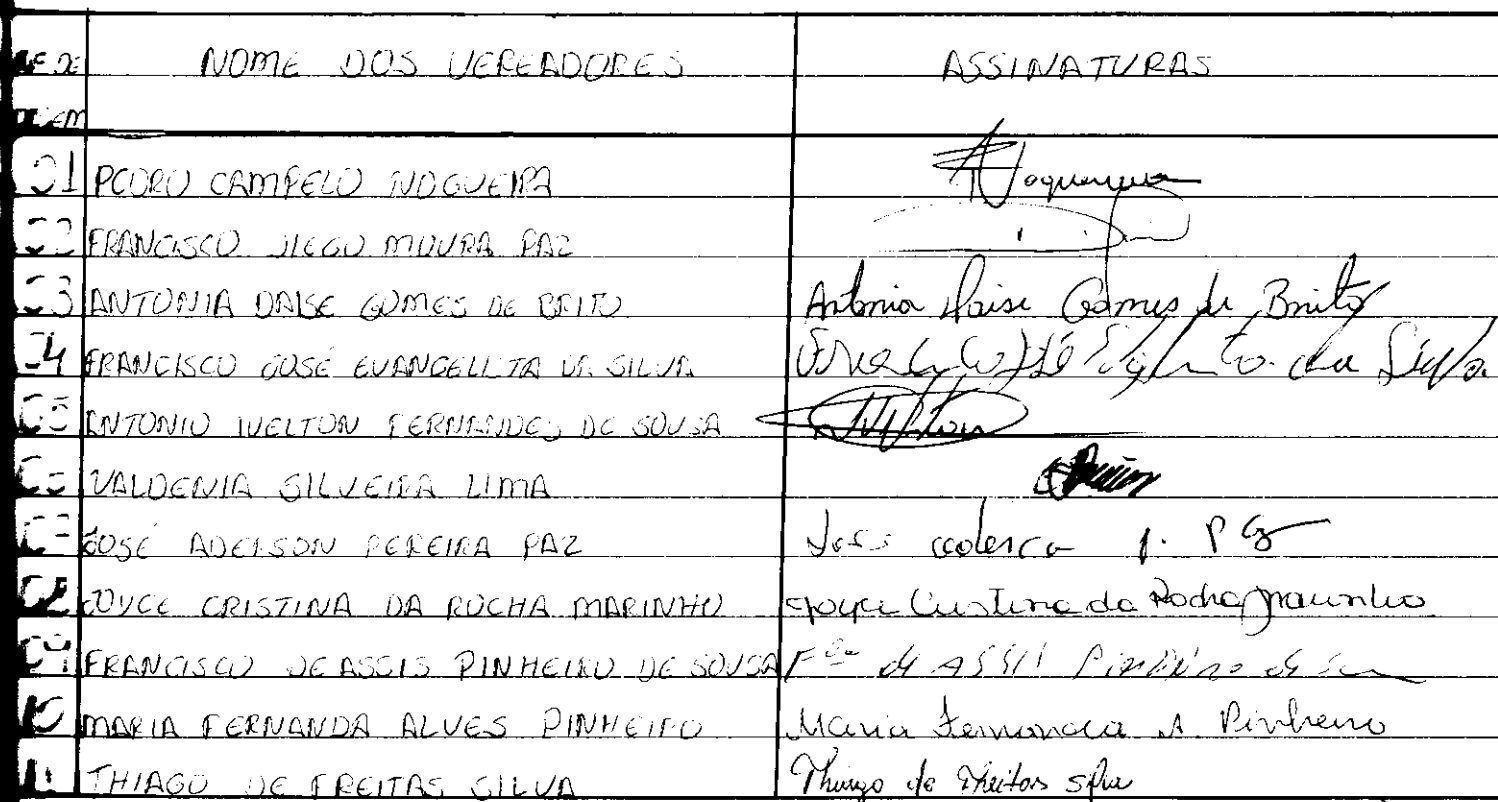 NOME DOS VEREADORES ASSINATURAS
01 PEDRO CAMPELO NOGUEIRA Nogueira
02 FRANCISCO DIEGO MOURA PAZ
03 ANTONIA DAISE GOMES DE BRITO Antonia Daise Gomes de Brito
04 FRANCISCO JOSÉ EVANGELISTA DA SILVA da Silva
05 ANTONIO WELTON FERNANDES DE SOUSA
06 VALDENIA SILVEIRA LIMA
07 JOSÉ ADERSON PEREIRA PAZ
08 JOYCE CRISTINA DA ROCHA MARINHO Joyce Cristina da Rocha Marinho
09 FRANCISCO DE ASSIS PINHEIRO DE SOUSA Fco de ASSIS Pinheiro de
10 MARIA FERNANDA ALVES PINHEIRO Maria Fernanda A Pinheiro
11 THIAGO DE FREITAS SILVA Thiago de Freitas Silva